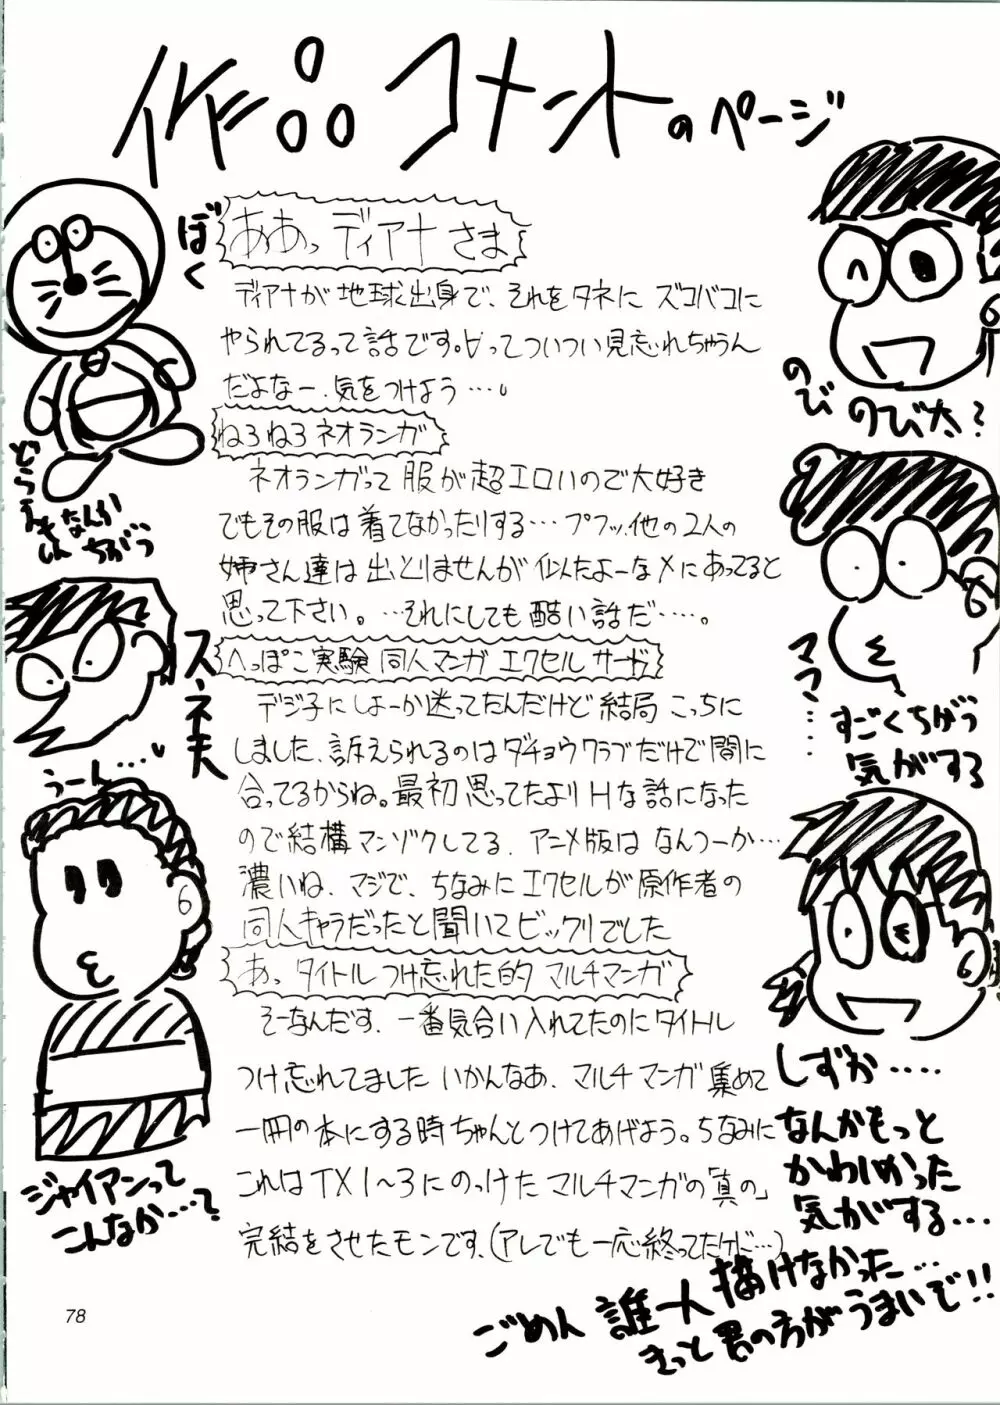 作品コメントのページ
ああっディアナさま
ディアナが地球出身で、それをタネにズコバコに
やられてるって話です。∀ってついつい見忘れちゃうん
だよなー、気をつけよう…。
ねろねろネオランガ
ネオランガって服が超エロいので大好き
でもその服は着てなかったりする…プフッ、他の2人の
姉さん達は出とりませんが似たよーなメにあってると
思って下さい。…それにしても酷い話だ……。
へっぽこ実験同人マンガエクセルサード
デジ子にしよーか迷ってたんだけど結局こっちに
しました、訴えられるのはダチョウクラブだけで間に
合ってるからね。最初思ってたよりHな話になった
ので結構マンゾクしてる、アニメ版はなんつーか…
濃いね、マジで、ちなみにエクセルが原作者の
同人キャラだったと聞いてビックリでした
あっタイトルつけ忘れた的マルチマンガ
そーなんだす、一番気合い入れてたのにタイトル
つけ忘れてました いかんなあ、マルチマンガ集めて
一冊の本にする時ちゃんとつけてあげよう。ちなみに
これはTX1〜3にのっけたマルチマンガの「真の」
完結をさせたモンです、(アレでも一応終ってたケド…)
ぼく
どらえもん
なんか
ちがう
スネ夫
うーん…
ジャイアンって
こんなか…?
のび
のび太?
ママ…
すごくちがう
気がする
しずか…
なんかもっと
かわいかった
気がする…
ごめん 誰一人描けなかった…
きっと君の方がうまいで!!
78